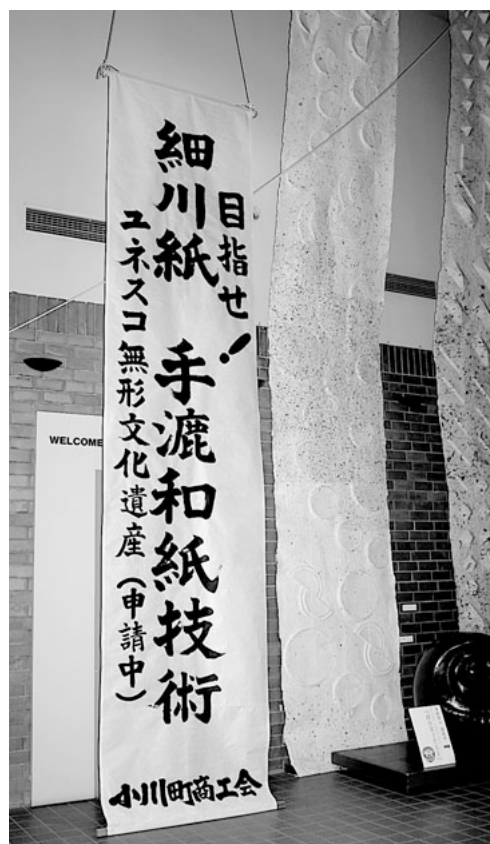 目指せ!
細川紙 手漉和紙技術
ユネスコ無形文化遺産(申請中)
小川町商工会
WELCOME